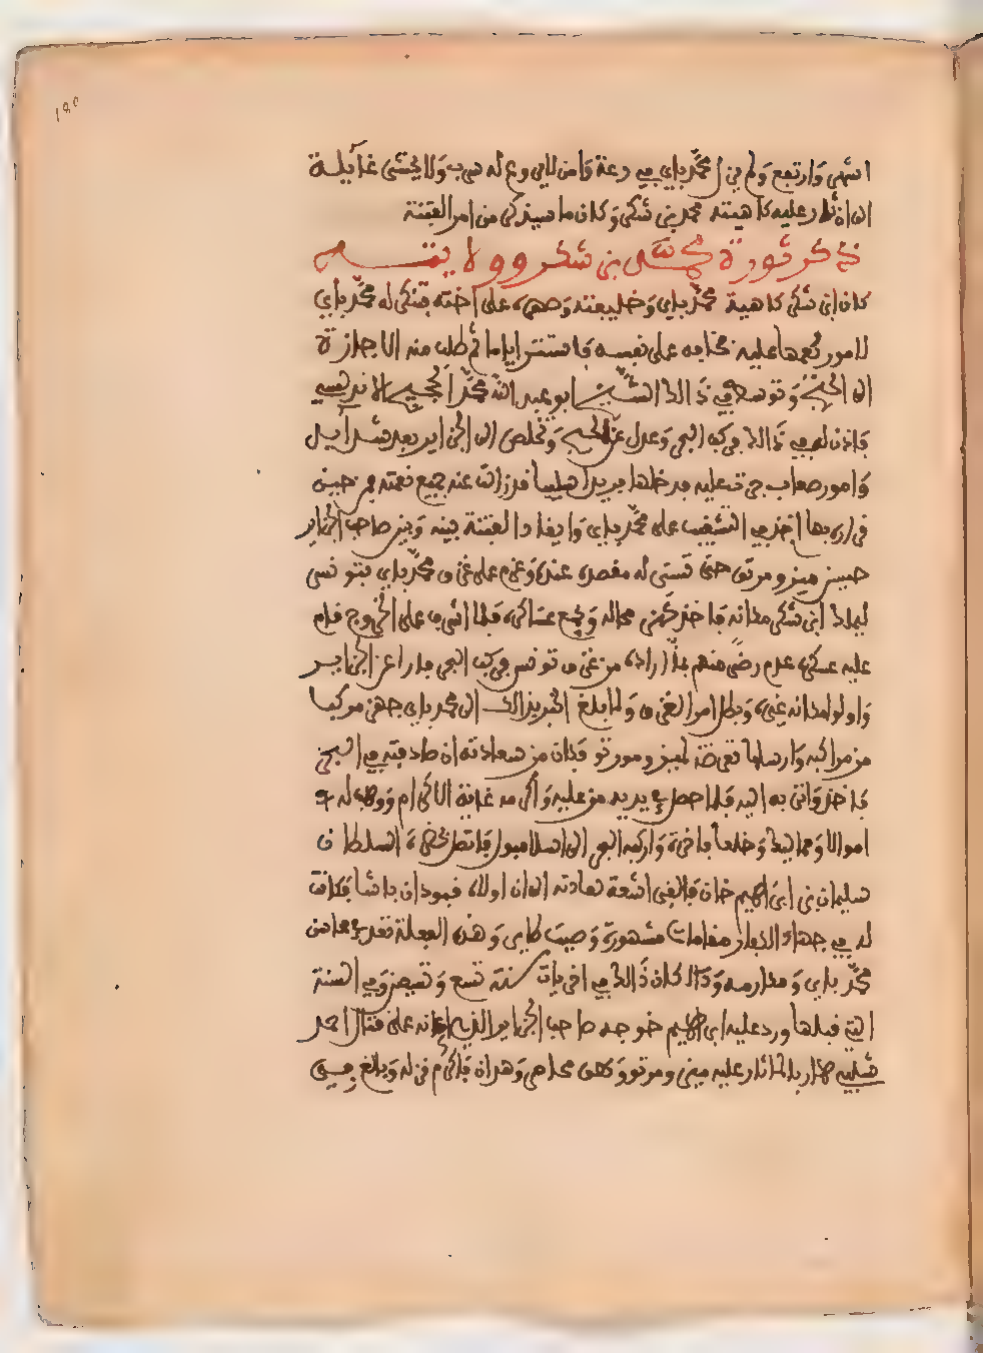 انتهى وارتفع ولم يزل محمد باي في دعة وامن لا يروع له سرب ولا يخشى غايلة
الى ان ثار عليه كاهيته محمد بن شكر وكان ما سيذكر من امر الفتنة
ذكر ثورة محمد بن شكر وولايته
كان ابن شكر كاهية محمد باي وخليفته وصهره على اخته فتنكر له محمد باي
لامور نقمها عليه فخافه على نفسه فاستتر اياما ثم طلب منه الاجازة
الى الحج وتوسل في ذالك الشيخ ابو عبد الله محمد الحجيج الاندلسي
فاذن له في ذالك فركب البحر وعدل عن الحج وتخلص الى الجزاير بعد شدايد
وامور صعاب جرت عليه فدخلها فريدا سليبا قد زالت عنه جميع نعمته فمن حين
قراره بها اخذ في التشغيب على محمد باي وايقاد الفتنة بينه وبين صاحب الجزاير
حسين ميزومرتو حتى تسنى له مقصده عنده وعزم على غزو محمد باي بتونس
ليملك ابن شكر مكانه فاخذ محاله وجمع عساكره فلما اشرف على الخروج قام
عليه عسكره عدم رضى منهم بما اراده من غزو تونس فركب البحر فارا عن الجزاير
واولوا مكانه غيره وبطل امر الغزو ولما بلغ الخبر بذالك الى محمد باي جهز مركبا
من مراكبه وارسلها تعرضة لميزومورتو فكان من سعادته ان صادفته في البحر
فاخذ واتى به اليه فلما حصل في يديه من عليه واكرمه غاية الاكرام ووهب له
اموالا ومماليكا وخلعا فاخرة واركبه البحر الى اسلامبول فاتصل بحضرة السلطان
سليمان بن ابراهيم خان فالقى اشعة سعادته الى ان اولاه قبودان باشا فكانت
له في جهاد الكفار مقامات مشهورة وصيت طاير وهذه الفعلة تعد في محاسن
محمد باي ومكارمه وكان ذالك في اخريات سنة تسع وتسعين وفي السنة
التي قبلها ورد عليه ابراهيم خوجه صاحب الجزاير الذي اعانه على قتال احمد
شلبي هاربا لما ثار عليه ميزومورتو وهران فاكرم نزله وبلغ في